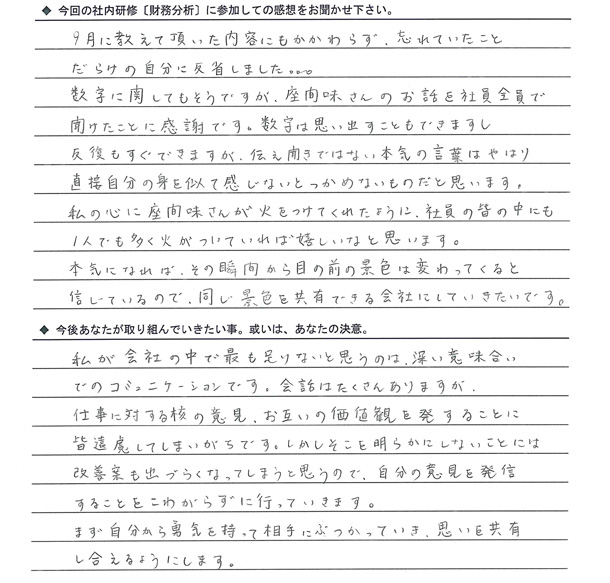 ◆ 今回の社内研修〔財務分析〕に参加しての感想をお聞かせ下さい。
9月に教えて頂いた内容にもかかわらず、忘れていたこと
だらけの自分に反省しました。。。
数字に関してもそうですが、座間味さんのお話を社員全員で
聞けたことに感謝です。数字は思い出すこともできますし
反復もすぐできますが、伝え聞きではない本気の言葉はやはり
直接自分の身を似て感じないとつかめないものだと思います。
私の心に座間味さんが火をつけてくれたように、社員の皆の中にも
1人でも多く火がついていれば嬉しいなと思います。
本気になれば、その瞬間から目の前の景色は変わってくると
信じているので、同じ景色を共有できる会社にしていきたいです。
◆ 今後あなたが取り組んでいきたい事。或いは、あなたの決意。
私が会社の中で最も足りないと思うのは、深い意味合い
でのコミュニケーションです。会話はたくさんありますが、
仕事に対する核の意見、お互いの価値観を発することに
皆遠慮してしまいがちです。しかしそこを明らかにしないことには
改善案も出づらくなってしまうと思うので、自分の意見を発信
することをこわがらずに行っていきます。
まず自分から勇気を持って相手にぶつかっていき、思いを共有
し合えるようにします。